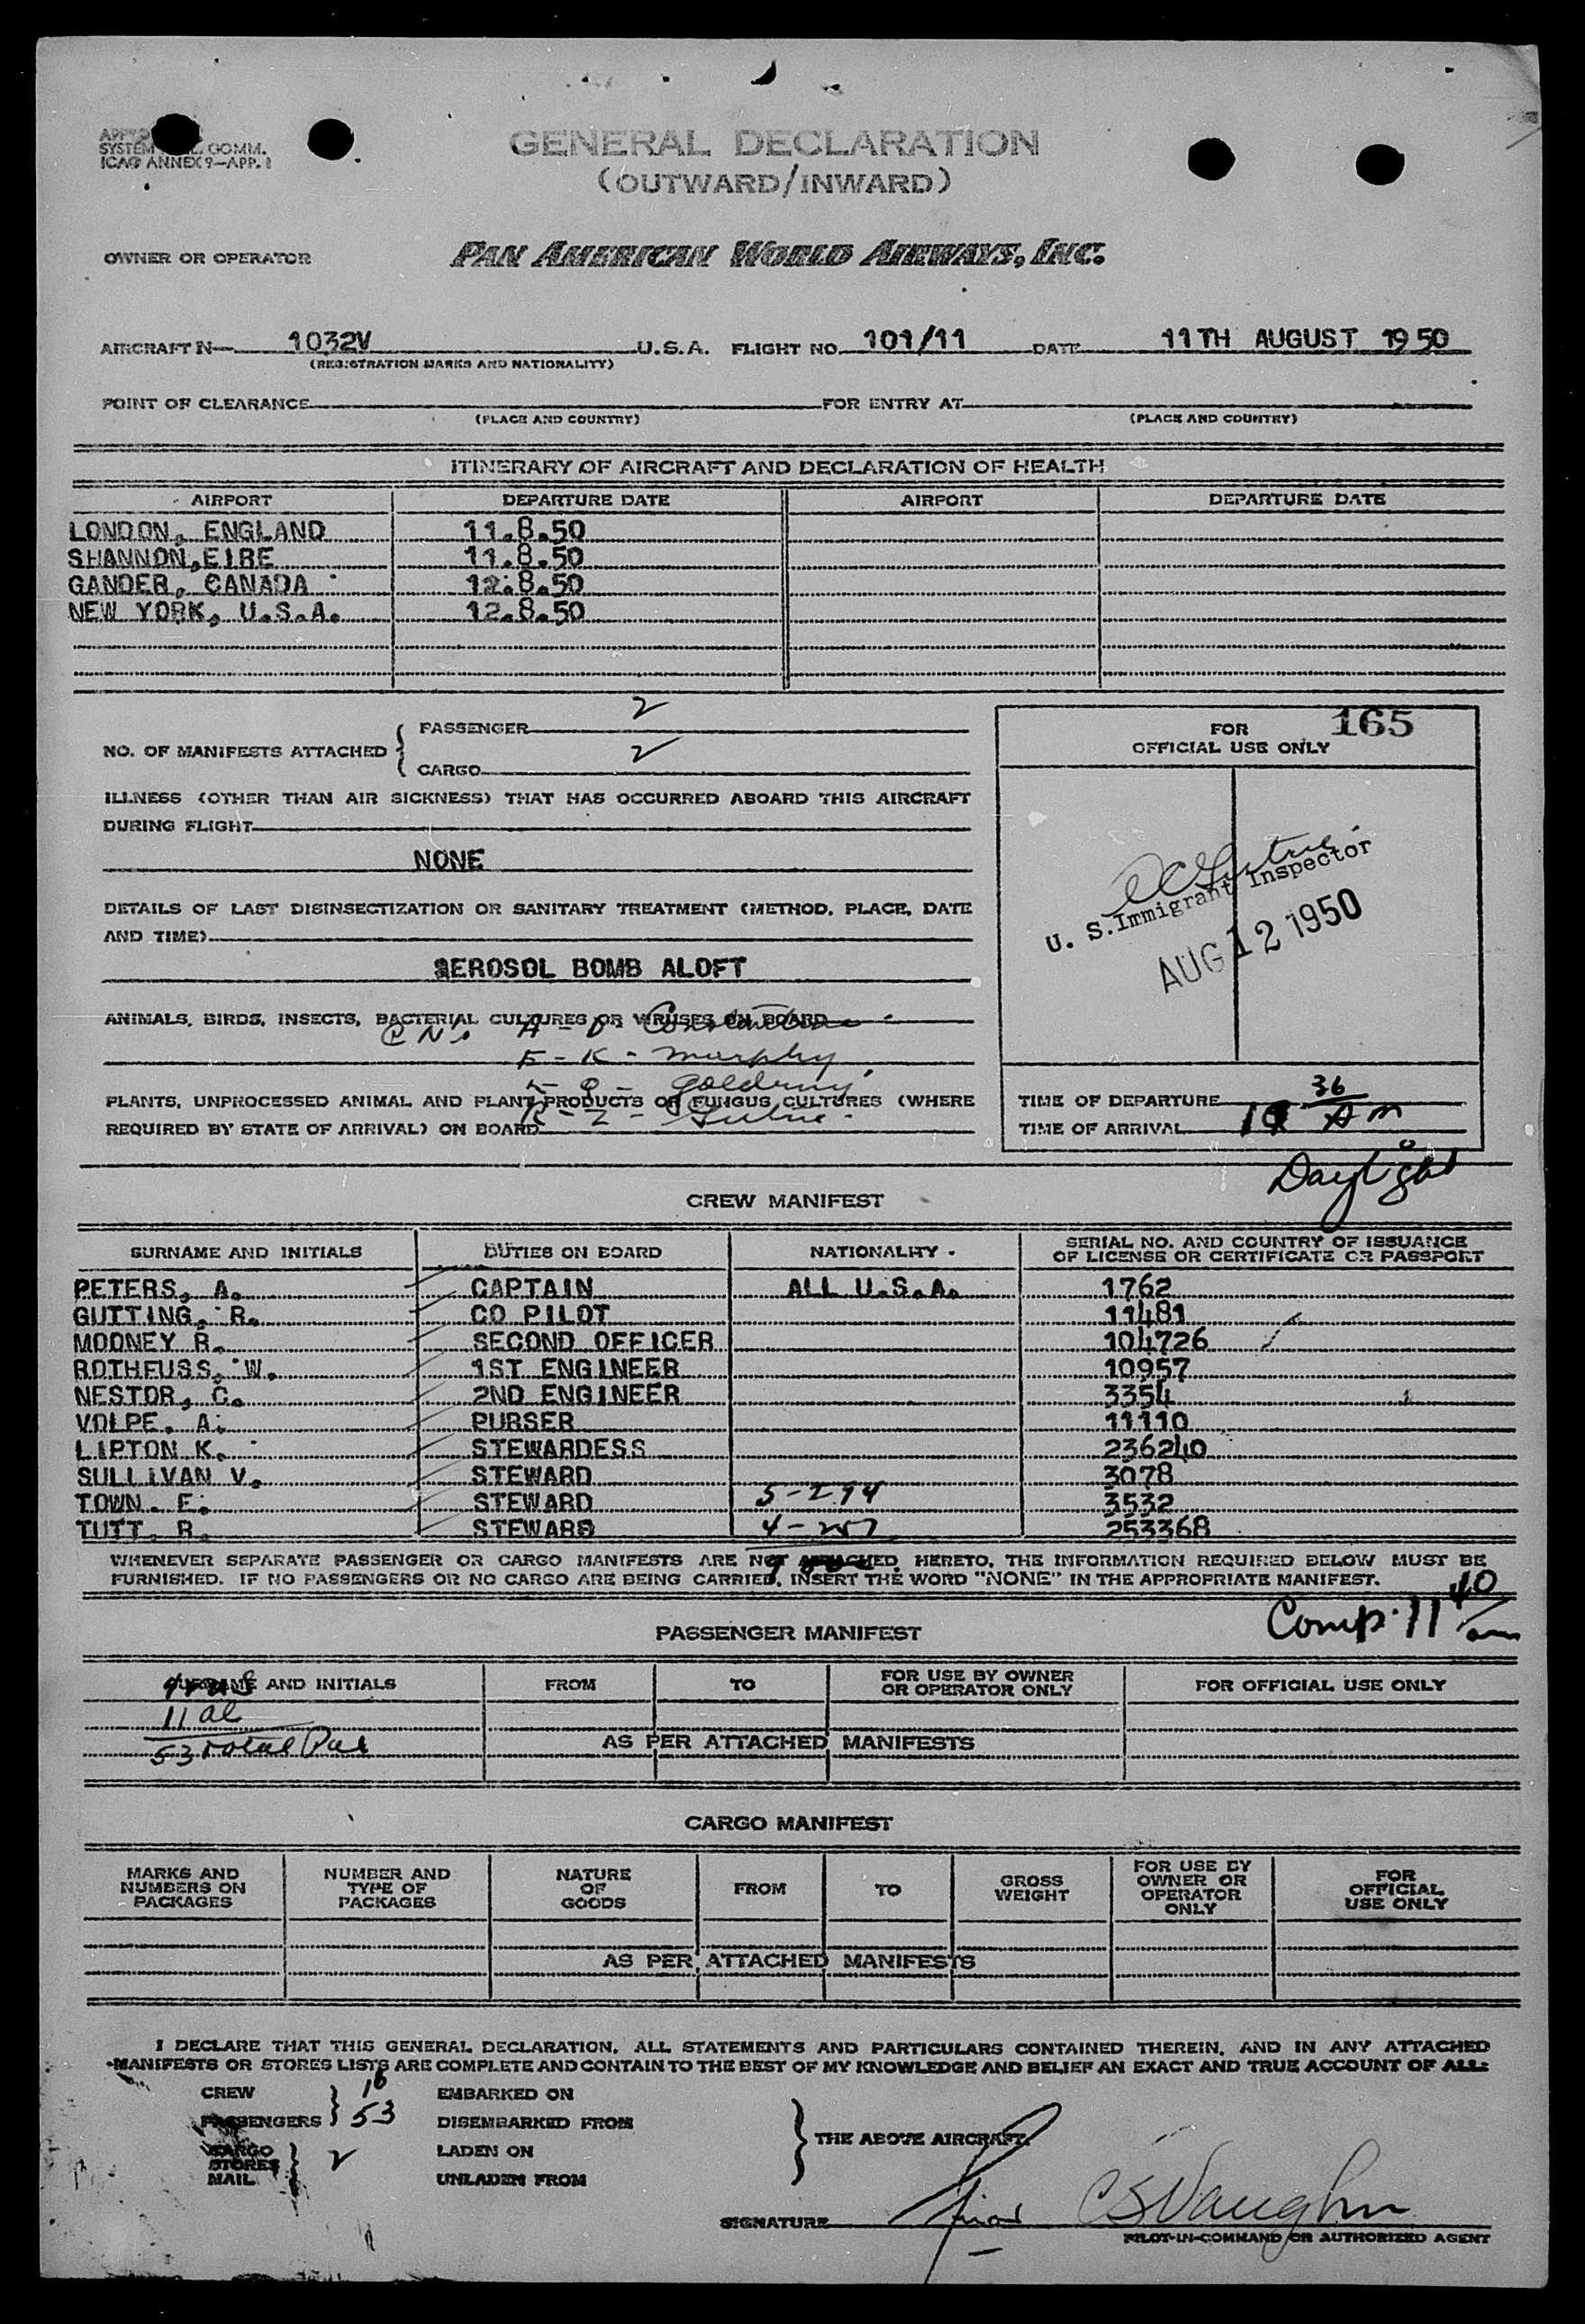 SYSTEM COMM.
ICAO ANNEX 9—APP. 1
GENERAL DECLARATION
(OUTWARD/INWARD)
OWNER OR OPERATOR PAN AMERICAN WORLD AIRWAYS, INC.
AIRCRAFT N— 1032V U.S.A. FLIGHT NO. 101/11 DATE 11TH AUGUST 1950
(REGISTRATION MARKS AND NATIONALITY)
POINT OF CLEARANCE FOR ENTRY AT
(PLACE AND COUNTRY) (PLACE AND COUNTRY)
ITINERARY OF AIRCRAFT AND DECLARATION OF HEALTH
AIRPORT DEPARTURE DATE AIRPORT DEPARTURE DATE
LONDON, ENGLAND 11.8.50
SHANNON, EIRE 11.8.50
GANDER, CANADA 12.8.50
NEW YORK, U.S.A. 12.8.50
NO. OF MANIFESTS ATTACHED
PASSENGER 2
CARGO 2
ILLNESS (OTHER THAN AIR SICKNESS) THAT HAS OCCURRED ABOARD THIS AIRCRAFT
DURING FLIGHT
NONE
DETAILS OF LAST DISINSECTIZATION OR SANITARY TREATMENT (METHOD, PLACE, DATE
AND TIME)
AEROSOL BOMB ALOFT
ANIMALS, BIRDS, INSECTS, BACTERIAL CULTURES OR VIRUSES ON BOARD
A - D
F - K - Murphy
PLANTS, UNPROCESSED ANIMAL AND PLANT PRODUCTS OR FUNGUS CULTURES (WHERE
REQUIRED BY STATE OF ARRIVAL) ON BOARD
FOR 165
OFFICIAL USE ONLY
U. S. Immigrant Inspector
AUG 12 1950
TIME OF DEPARTURE
TIME OF ARRIVAL 36 AM
Daylight
CREW MANIFEST
SURNAME AND INITIALS DUTIES ON BOARD NATIONALITY SERIAL NO. AND COUNTRY OF ISSUANCE
OF LICENSE OR CERTIFICATE OR PASSPORT
PETERS, A. CAPTAIN ALL U.S.A. 1762
GUTTING, R. CO PILOT 11481
MOONEY R. SECOND OFFICER 104726
ROTHFUSS, W. 1ST ENGINEER 10957
NESTOR, C. 2ND ENGINEER 3354
VOLPE, A. PURSER 11110
LIPTON K. STEWARDESS 236240
SULLIVAN V. STEWARD 3078
TOWN. E. STEWARD 5-294 3532
TUTT, R. STEWARD 4-257 253368
WHENEVER SEPARATE PASSENGER OR CARGO MANIFESTS ARE NOT ATTACHED HERETO, THE INFORMATION REQUIRED BELOW MUST BE
FURNISHED. IF NO PASSENGERS OR NO CARGO ARE BEING CARRIED, INSERT THE WORD "NONE" IN THE APPROPRIATE MANIFEST.
Comp. 11 40 am
PASSENGER MANIFEST
SURNAME AND INITIALS FROM TO FOR USE BY OWNER
OR OPERATOR ONLY FOR OFFICIAL USE ONLY
11 al
53 total Pas
AS PER ATTACHED MANIFESTS
CARGO MANIFEST
MARKS AND
NUMBERS ON
PACKAGES
NUMBER AND
TYPE OF
PACKAGES
NATURE
OF
GOODS
FROM
TO
GROSS
WEIGHT
FOR USE BY
OWNER OR
OPERATOR
ONLY
FOR
OFFICIAL
USE ONLY
AS PER ATTACHED MANIFESTS
I DECLARE THAT THIS GENERAL DECLARATION, ALL STATEMENTS AND PARTICULARS CONTAINED THEREIN, AND IN ANY ATTACHED
MANIFESTS OR STORES LISTS ARE COMPLETE AND CONTAIN TO THE BEST OF MY KNOWLEDGE AND BELIEF AN EXACT AND TRUE ACCOUNT OF ALL:
CREW 10 EMBARKED ON
PASSENGERS 53 DISEMBARKED FROM
CARGO LADEN ON
STORES 2
MAIL UNLADEN FROM
THE ABOVE AIRCRAFT.
SIGNATURE CS Vaughn
PILOT-IN-COMMAND OR AUTHORIZED AGENT